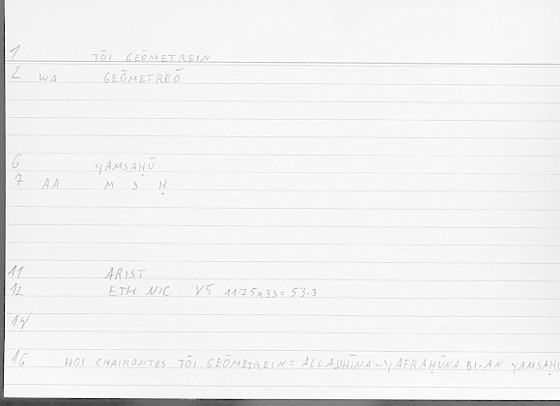 1 TŌI GEŌMETREIN
2 WA GEŌMETREŌ
6 YAMSAḤU
7 AA M S Ḥ
11 ARIST
12 ETH NIC X5 1175a33 = 53.3
14
16 HOI CHAIRONTES TŌI GEŌMETREIN = ALLADHĪNA YAFRAḤŪNA BI-AN YAMSAḤŪ